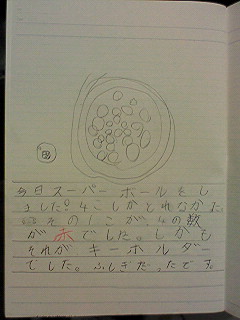 今日スーパーボールをし
ました。4こしかとれなかた
その1こが、4の数
が赤でした。しかも
それがキーホルダー
でした。ふしぎだったです。